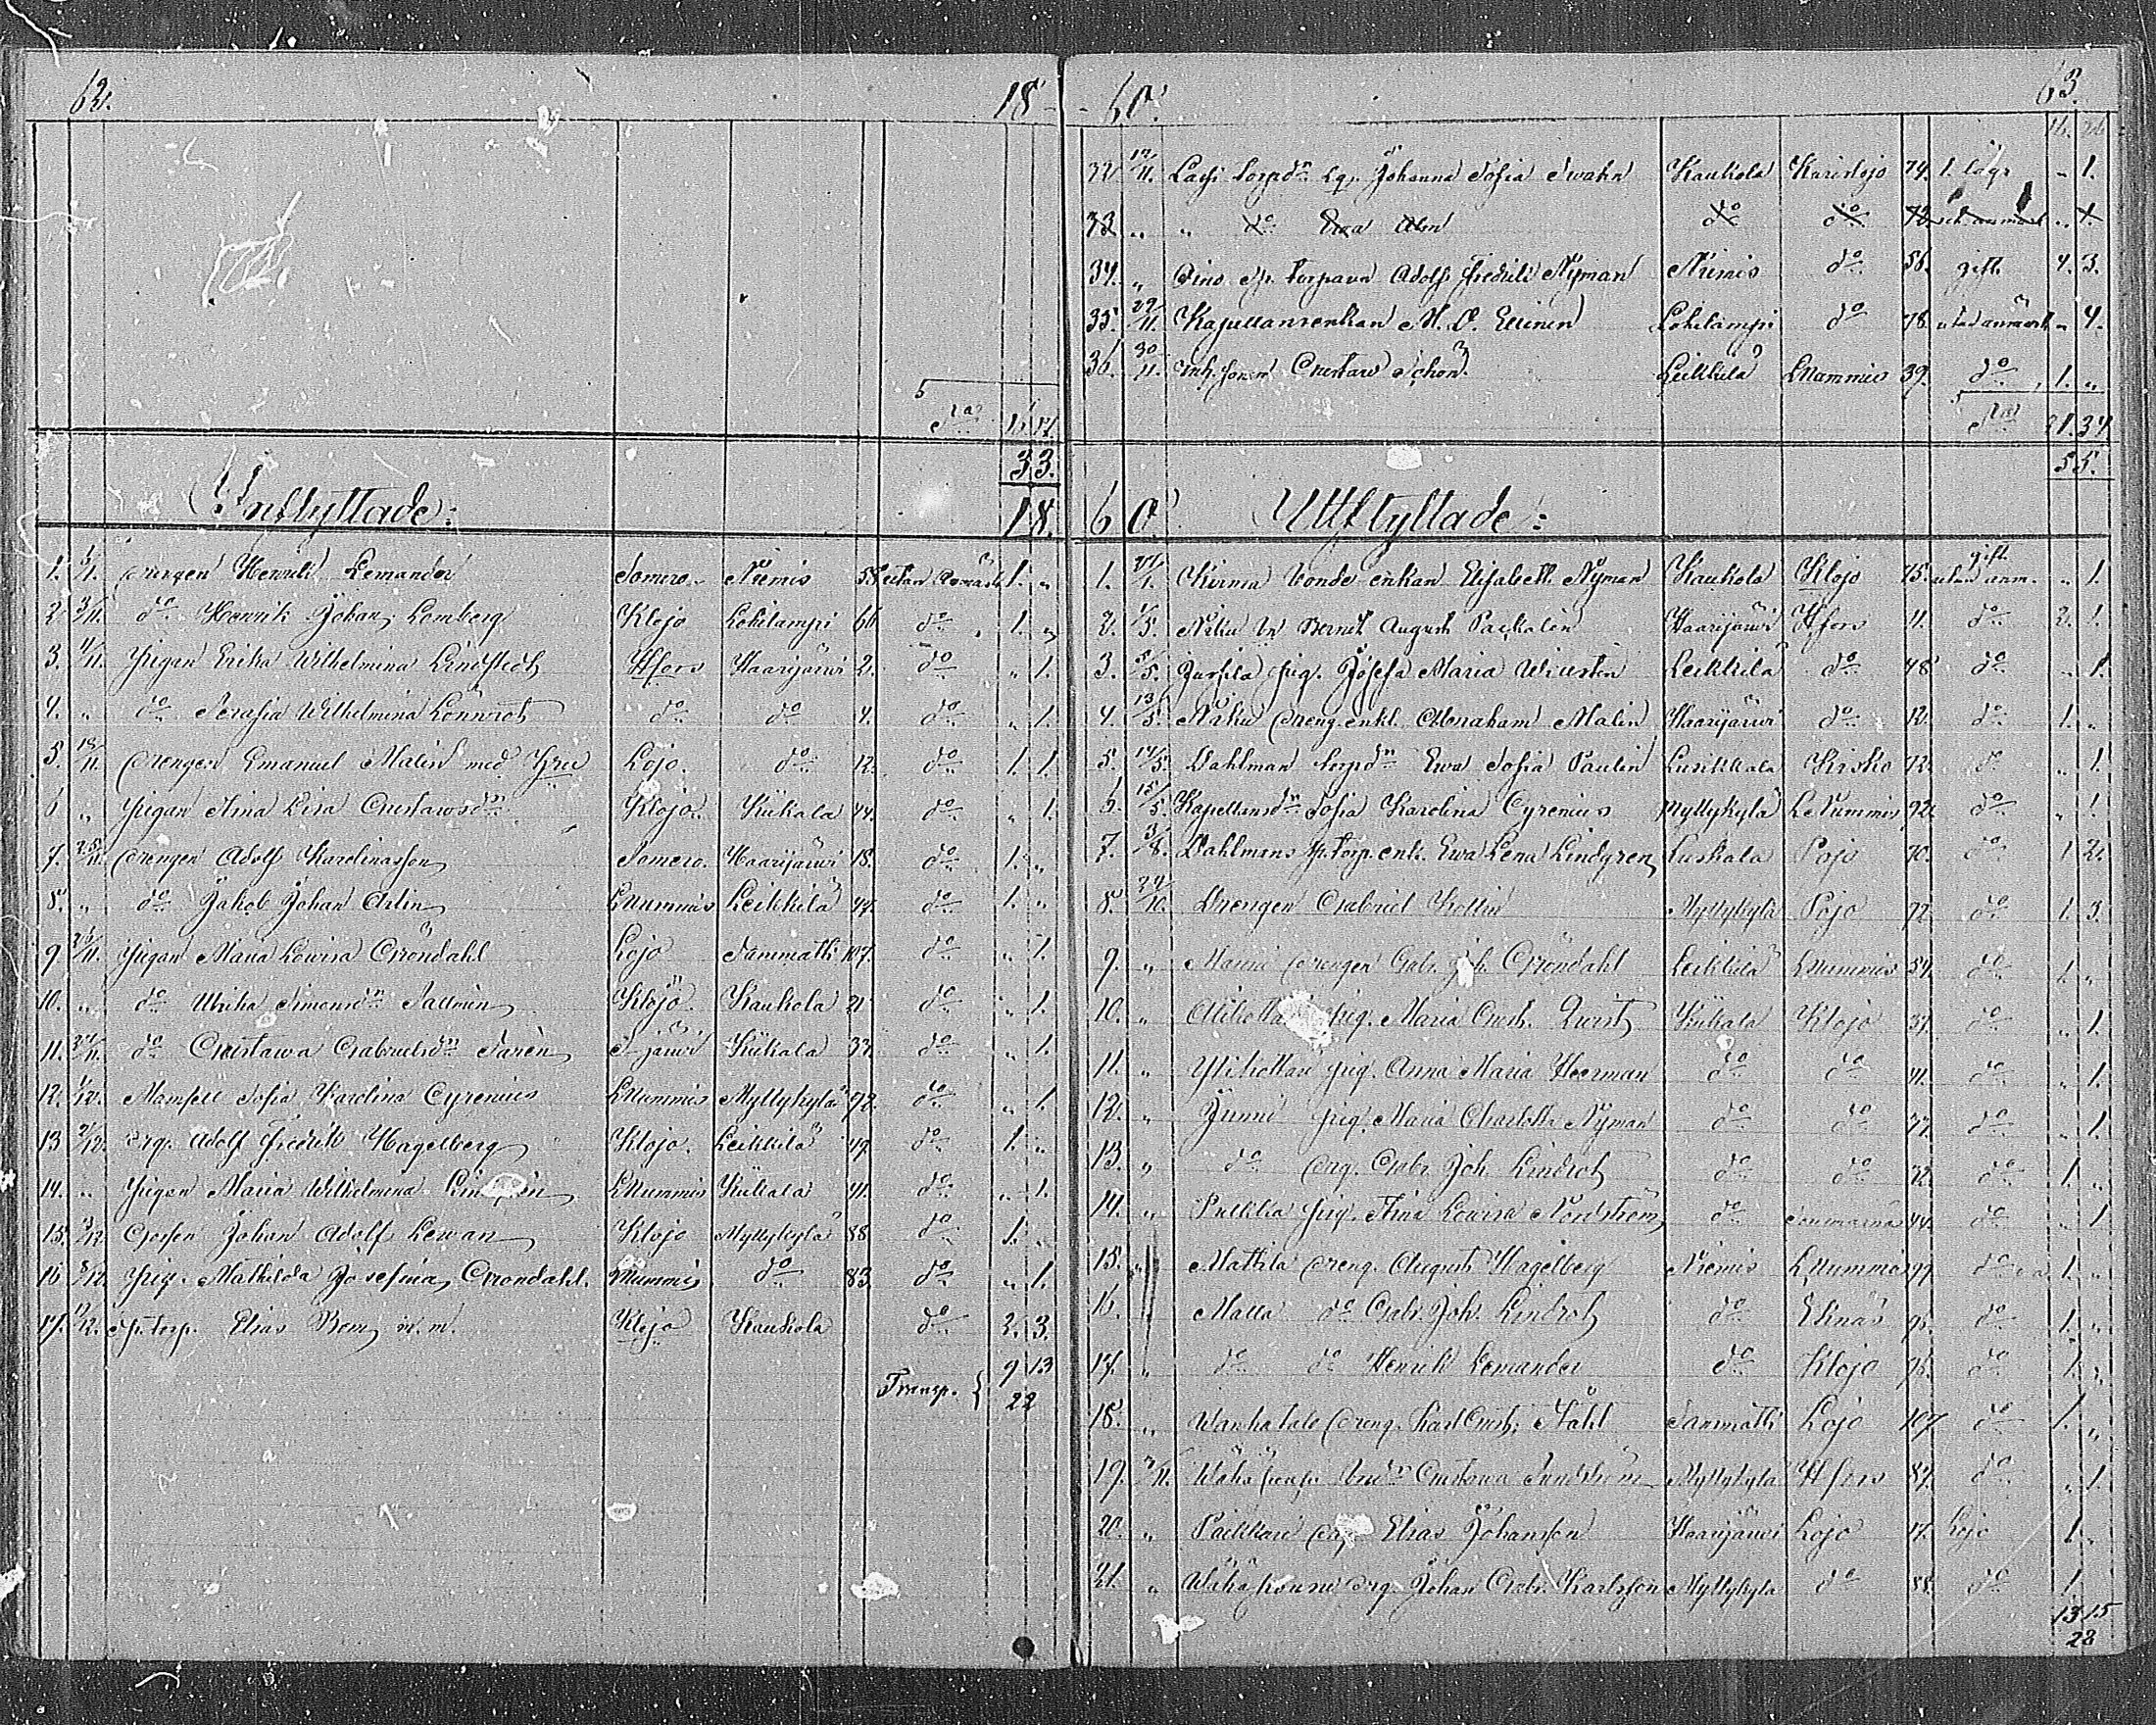 62.
18
Sa 16. 17.
33.
Inflyttade: 18
1. 1/1. Drengen Henrik Lemander Somero. Niemis 55. utan anmärk. 1. "
2. 3/11. do Henrik Johan Lemberg Klojo Lohilampi 66 do 1. "
3. 4/11. Pigan Erika Wilhelmina Lindstedt Hfors Haarijärwi 2. do " 1.
4. " do Serafia Wilhelmina Lönnrot do do 4. do " 1.
5. 18/11. Drengen Emanuel Malin med Hru Lojo. do 12. do 1. 1.
6 " Pigan Stina Lisa Gustawsdr Klojo. Kiikala 44. do " 1.
7. 25/11. Drengen Adolf Karolinasson Somero. Haarijärwi 18. do 1. "
8. " do Jakob Johan Arlin LNummis Leikkilä 47. do 1. "
9 26/11. Pigan Maria Lowisa Gröndahl Lojo Sammatti 107. do " 1.
10. " do Ulrika Simonsdr Sallmén Klojo. Kaukola 21 do " 1.
11. 27/11. do Gustawa Gabrielsdr Sarén S-järwi Kiikala 33. do " 1.
12. 1/12. Mamsell Sofia Karolina Cyrenius LNummis Myllykylä 92. do " 1.
13 2/12. Drg. Adolf Fredrik Hagelberg Klojo. Leikkilä 49. do 1. "
14. " Pigan Maria Wilhelmina LNummis Kiikala 41. do " 1.
15. 3/12 Gossen Johan Adolf Lewan Klojo Myllykylä 88 do 1. "
16 8/12 Pig. Mathilda Josefina Gröndahl. Nummis do 83. do " 1.
17. 17/12. Sp. torp. Elias Bom m.m. Klojo Kaukola do 2. 3.
Transp. { 9 13
22
60. 63.
16. 26
32 12/11. Lassi torpdr Lq. Johanna Sofia Swahn Kaukola Karislojo 74. 1. läg " 1.
33 " " do Ewa Alin do do 72. utan anmärk " 1.
34. " Sp. Torparen Adolf Fredrik Nyman Niemis do 56. gift 4. 3.
35. 29/11. Kapellansenkan M. L. Elinin Lohilampi do 78 utan anmärk " 4.
36. 30/11. Inh. sonen Gustaw Schön Leikkilä LNummis 39. do 1. "
Sa 21. 34
55.
60 Utflyttade:
1. 27/1. Kirma bonde enkan Elisabeth Nyman Kaukola Klojo 75. gift utan anm. " 1.
2. 1/5. Bernd. August Paikalén Haarijärwi Hfors 11. do 2. 1.
3. 5/5. Jussila pig. Josefa Maria Wiustin Leikkilä do 48 do " 1.
4. 13/5. Näku dreng enkl. Abraham Malin Haarijärwi do 12. do 1. "
5. 14/5. Dahlman torpdr Ewa Sofia Paulin Luskkala Kisko 72. do " 1.
6. 15/5. Kapellansdr Sofia Karolina Cyrenius Myllykylä LNummis 92. do " 1.
7. 3/8. Dahlmans sp. torp. enk. Ewa Lena Lindgren Luskala Pojo 70. do 1 2.
8. 24/10. Drengen Gabriel Kollin Myllykylä Pojo 72 do 1. 3.
9. " Manni drengen Gabr. Joh. Gröndahl Leikkilä LNummis 54. do 1. "
10. " pig. Maria Gust. Qwist Kiikala Klojo 37. do " 1.
11. " Ylihottari pig. Anna Maria Heerman do do 41. do " 1.
12. " Junni pig. Maria Charlotta Nyman do do 77. do " 1.
13. " do drg. Gabr. Joh. Lindroth do do 72. do 1. "
14. " Pullila pig. Stina Lowisa Nordström do 44. do " 1
15. " Mattila dreng. August Hagelberg Niemis LNummis 99. do 1. "
16. " Malla do Gabr. Joh. Lindroth do Eknäs 95. do 1. "
17. " do do Henrik Lemander do Klojo 95. do 1. "
18. " Wanhatalo dreng. Karl Gust. Ståhl Sammatti Lojo 107 do 1. "
19. 2/11. Gustawa Sundström Myllykylä Hfors 87. do " 1.
20. " Paikkari drg. Elias Johansson Haarijärwi Lojo 17. Lojo 1. "
21. " Wähäkouni drg. Johan Gabr. Karlsson Myllykylä do 88. do 1
13 15
28